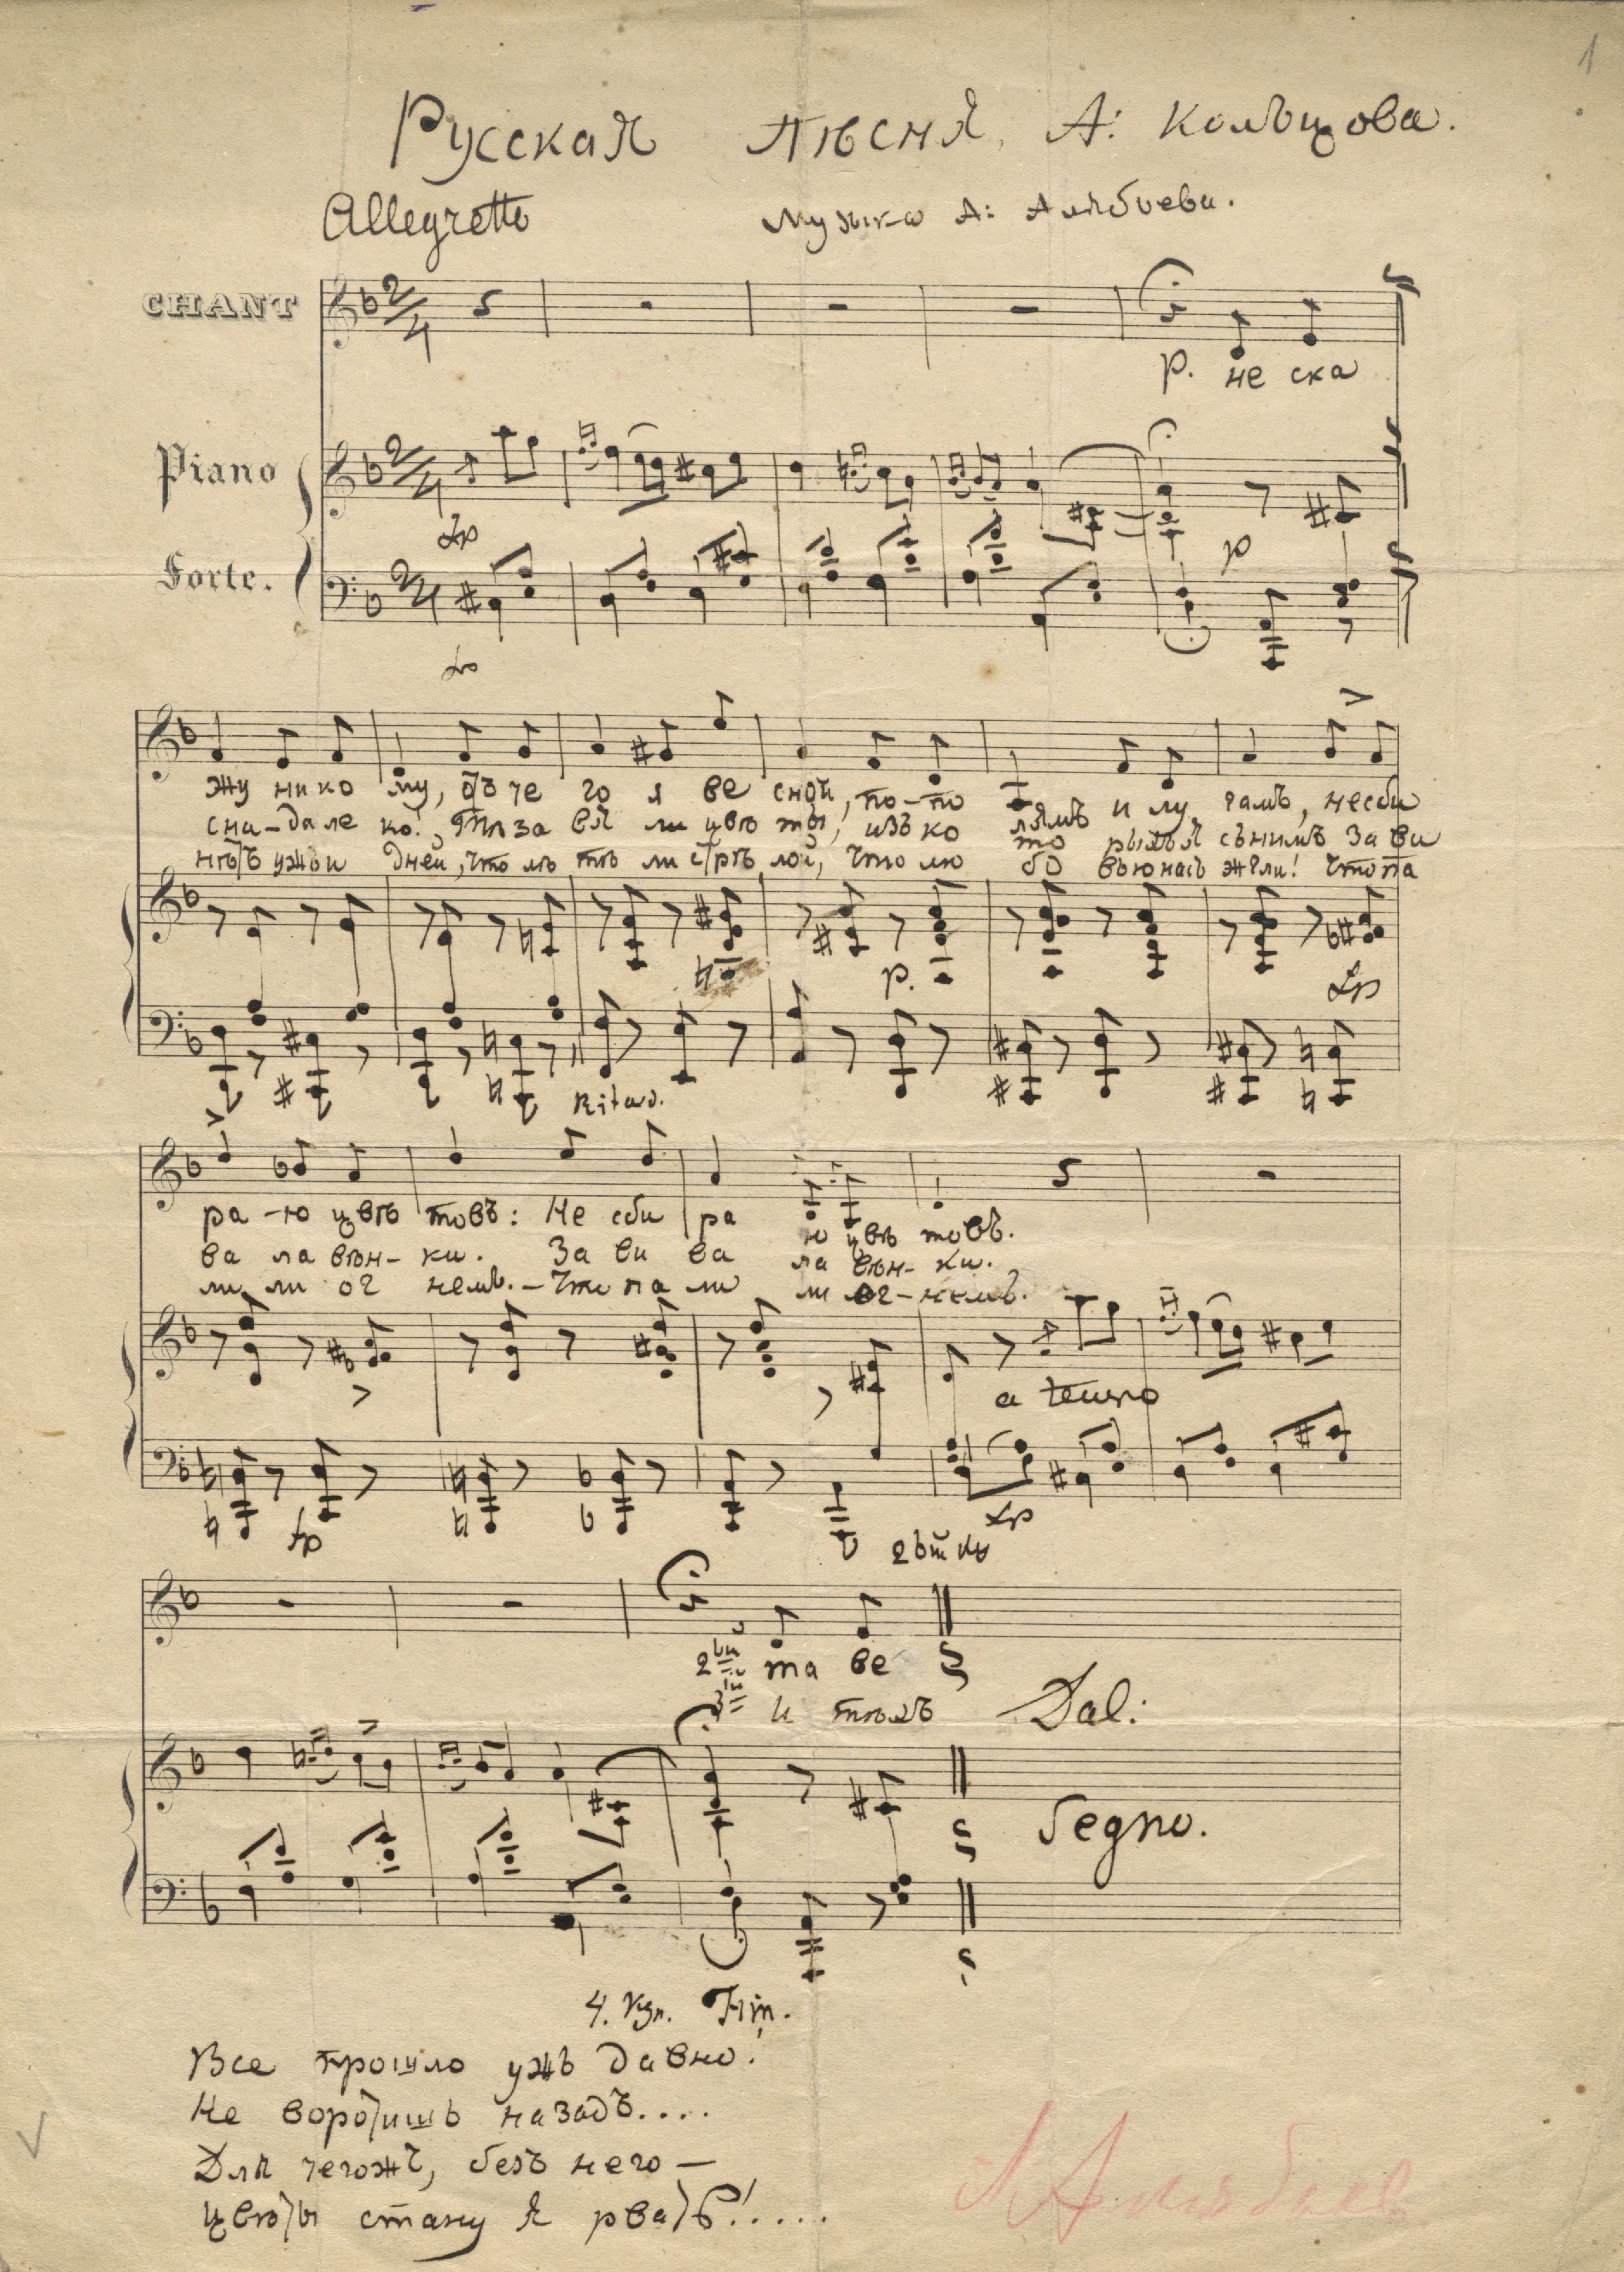 1
Русская пѣсня, А: Кольцова.
Allegretto Музыка А: Алябьева.
CHANT
р. не ска
Piano
p
Forte.
жу ни ко му, отъ че го я ве сной, по-по лямъ и лу гамъ, не сби
сна-да ле ко!, Тѣ за вял ли цвѣ ты, изъ ко то рыхъ я съ нимъ за ви
нѣтъ ужъ и дней, что лѣ тѣ ли стрѣ лой, что лю бо вью насъ жгли! что па
p.
Ritard.
ра-ю цвѣ товъ: Не сби ра ю цвѣ товъ.
ва ла вѣн-ки. За ви ва ла вѣн-ки.
ли ли ог немъ.- Что па ли ли ог-немъ.
a tempo
2ый Ку
2ый та ве
3ій и тѣхъ Dal:
Segno.
4. Куп. Fin.
Все прошло ужъ давно!
Не воротишь назадъ....
Для чегожъ, безъ него —
Цвѣты стану я рвать!.....
А Алябьев